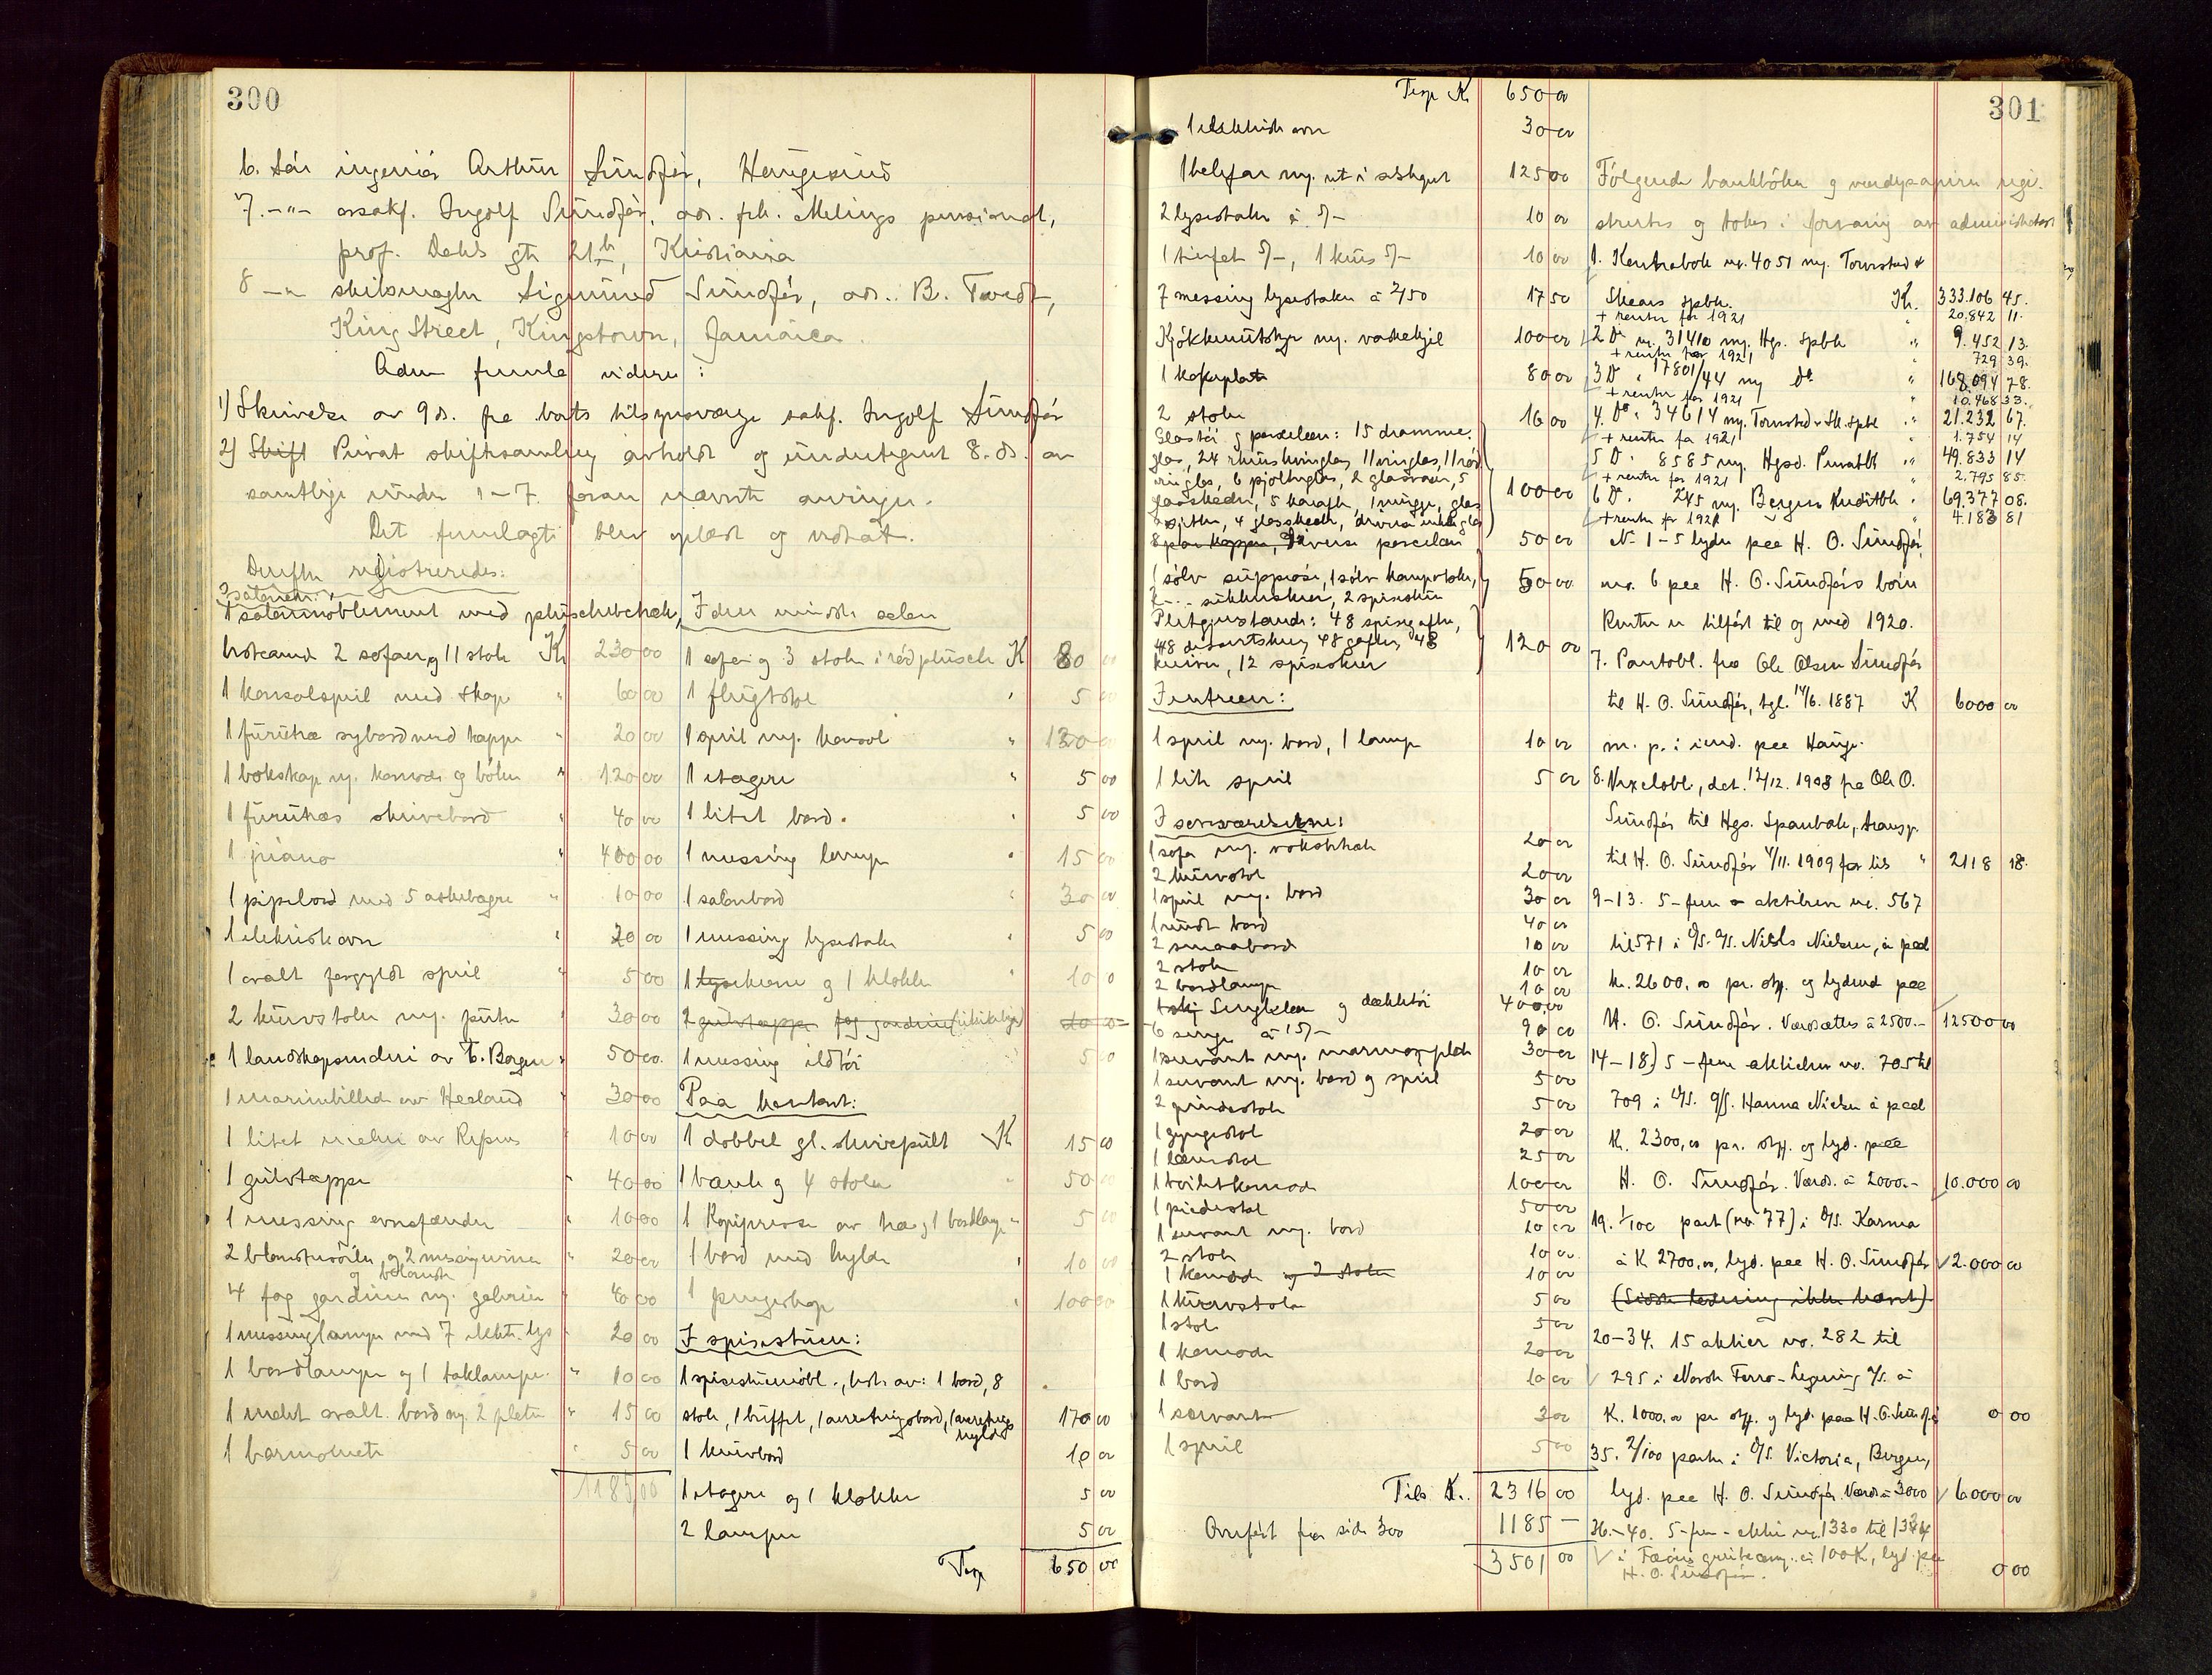 300
6. Søn ingeniør Arthur Sundfør, Haugesund
7. -"- orsakf. Ingolf Sundfør, adr. frk. Melings pensionat,
prof. Dahls gt 21 b, Kristiania
8 -"- skibsmægler Sigmund Sundfør, adr. B. Tvedt,
King Street, Kingstown, Jamaica.
Adm fremla videre:
1) Skrivelse av 9 ds. fra boets tilsynsværge sakf. Ingolf Sundfør
2) Skift Privat skiftesamling avholdt og undertegnet 8. ds. av
samtlige under 1-7 foran nævnte arvinger.
Det fremlagte blev oplæst og vedtat.
Derefter registreredes:
I salonen:
1 salonmøblement med plüschbetræk,
bestaaende 2 sofaer og 11 stole Kr 230 00
1 konsolspeil med skap " 60 00
1 furutræ sybord med kappe " 20 00
1 bokskap m. konsol og bøker " 120 00
1 furutræs skrivebord " 40 00
1 piano " 400 00
1 pipebord med 5 askebægre " 10 00
1 elektrisk ovn " 30 00
1 ovalt forgyldt speil " 5 00
2 kurvstoler m. puter " 30 00
1 landskapsmaleri av C. Bøgen " 50 00
1 marinebilled av Heeland " 30 00
1 litet maleri av Refsnes " 10 00
1 gulvteppe " 40 00
1 messing ovnsforsætter " 10 00
2 blomstersøiler og 2 messingurner " 20 00
og blomster
4 fag gardiner m. galerier " 40 00
1 messinglampe med 7 elektr. lys " 20 00
1 bordlampe og 1 taklampe " 10 00
1 malet ovalt bord og 2 plater " 15 00
1 barometer " 5 00
1185 00
I den mindre salon
1 sofa og 3 stole i rød plüsch K 80 00
1 fløistol " 5 00
1 speil m. konsol " 130 00
1 etagere " 5 00
1 litet bord. " 5 00
1 messing lampe " 15 00
1 salonbord " 30 00
1 messing lysestake " 5 00
1 lysekrone og 1 klokke " 10 0
2 gulvtepper fag gardiner
1 messing ildtøi 5 0
Paa kontoret:
1 dobbel gl. skrivepult K 15 00
1 bænk og 4 stoler " 50 00
1 Kopipresse av træ og 1 bordlampe " 5 00
1 bord med hylde " 10 00
1 pengeskap " 100 00
I spisestuen:
1 spisestuemøbl., best. av: 1 bord, 8
stole, 1 buffet, 1 anretningsbord, 1 anretnings 170 00
hylde
1 knivbord 10 00
1 etagere og 1 klokke 5 00
2 lamper 5 00
Trsp 650 00
301
Trsp K 650 00
1 elektrisk ovn 30 00
1 telefon m. ret i selskapet 125 00
2 lysestaker à 5/- 10 00
1 tinfat 5/-, 1 krus 5/- 10 00
7 messing lysestaker à 2/50 17 50
Kjøkkenutstyr m. vaskekjel 100 00
1 kokeplate 80 00
2 stoler 16 00
Glastøi og porcelæn: 15 dramme-
glas, 24 rhinskvinglas, 11 vinglas, 11 rød-
vinglas, 6 pjolterglas, 2 glasvaser, 5
glasskaaler, 5 karafler, 1 mugge, glas-
4 glasskaaler, diverse enkelte glas 100 00
8 par kopper, Diverse porcelæn 50 00
1 sølv suppeøse, 1 sølv kampestoke,
2 -"- sukkerskeer, 2 spiseskeer 50 00
Pletgjenstande: 48 spisegafler,
48 dessertskeer, 48 gafler, 48
kniver, 12 spiseskeer 120 00
I entreen:
1 speil m. bord, 1 lampe 10 00
1 lite speil 5 00
I soveværelserne:
1 sofa m. voksdræk 20 00
2 kurvstole 20 00
1 speil m. bord 30 00
1 rundt bord 40 00
2 smaabord 10 00
2 stole 10 00
2 bordlamper 10 00
Sengklær og dækketøi 400,00
6 senge à 15/- 90 00
1 servant m. marmorplate 30 00
1 servant m. bord og speil 5 00
2 pindestole 5 00
1 gyngestol 20 00
1 lænestol 25 00
1 toilettkomode 100 00
1 piedestal 50 00
1 servant m. bord 10 00
2 stole 10 00
1 komode og 2 stoler 10 00
1 kurvstole 5 00
1 stol 5 00
1 komode 20 00
1 bord 10 00
1 servant 3 00
1 speil 5 00
Tils K. 2316 00
Overført fra side 300 1185 -
3501 00
Følgende bankbøker og verdipapirer regi-
strertes og tokes i forvaring av administrator
1. Kontrabok nr. 4051 m. Torvestad &
Skaare spbk. Kr. 333.106 45.
+ renter for 1921 " 20.842 11.
2 Do nr. 31410 m. Hgs. Spbk " 9.452 13.
+ renter for 1921 " 729 39.
3 Do " 17801/44 m Do " 168.094 78.
+ renter for 1921 " 10.468 33.
4. Do " 34614 m. Torvestad & Sk. Spbk " 21.232 67.
+ renter for 1921 " 1.754 14
5 Do " 8585 m. Hgsd. Privatbk " 49.833 14
+ renter for 1921 " 2.795 85.
6 Do " 245 m. Bergens Kreditbk " 69.377 08.
+ renter for 1921 " 4.183 81
Nr 1-5 lyder paa H. O. Sundfør,
nr. 6 paa H. O. Sundførs bo.
Renter er tilført til og med 1920.
7. Pantobl. fra Ole Olsen Sundfør
til H. O. Sundfør, tgl. 14/6. 1887 K 6000 00
m. p. i eiend. paa Hauge.
8. Vexelobl., dat. 12/12. 1908 fra Ole O.
Sundfør til Hgs. Sparebank, transp.
til H. O. Sundfør 4/11. 1909 for tils " 2118 18.
9-13. 5-fem aktiebrev nr. 567
til 571 i D/S. A/S. Niels Nielsen, à paal
kr. 2600,00 pr. stk. og lydende paa
H. O. Sundfør. Værdsættes à 2500.- 12500 00
14-18) 5-fem aktiebrev nr. 705 til
709 i D/S. A/S. Hanna Nielsen à paal
K. 2300,00 pr. stk. og lyd. paa
H. O. Sundfør. Værds. à 2000.- 10.000 00
19. 1/100 part (nr. 77) i D/S. Karma
à K 2700,00, lyd. paa H. O. Sundfør 2.000 00
(Sidste ikke hævet)
20-34. 15 aktier nr. 282 til
295 i Norsk Ferro-Legering A/S. à
K. 1000.00 pr. stk. og lyd. paa H. O. Sundfør 0 00
35. 2/100 parter i D/S. Victoria, Bergen,
lyd. paa H. O. Sundfør. Værds à 3000 6000 00
36.-40. 5-fem-aktier nr. 1330 til 1334
i à 100 K, lyd. paa
H. O. Sundfør. 0 00